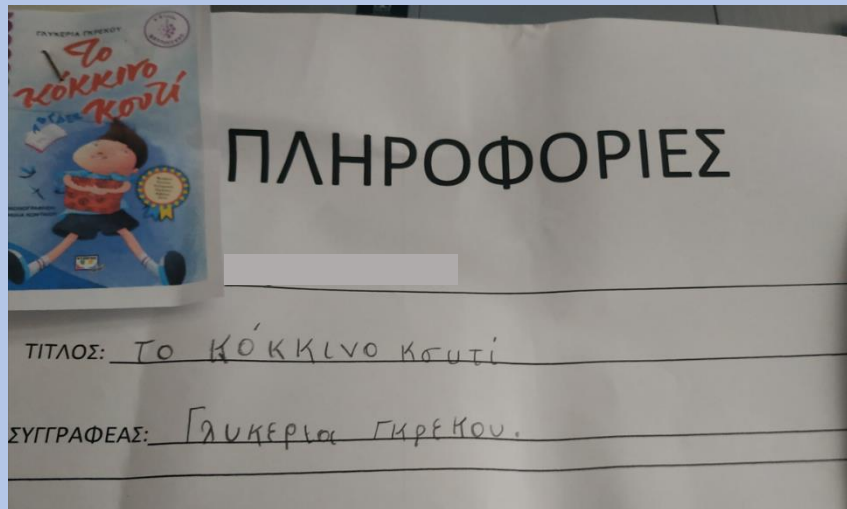 ΓΛΥΚΕΡΙΑ ΓΚΡΕΚΟΥ
Το
κόκκινο
κουτί
ΠΛΗΡΟΦΟΡΙΕΣ
ΤΙΤΛΟΣ: ΤΟ ΚΌΚΚΙΝΟ Κουτί
ΣΥΓΓΡΑΦΕΑΣ: Γλυκερια ΓκρΕΚου.